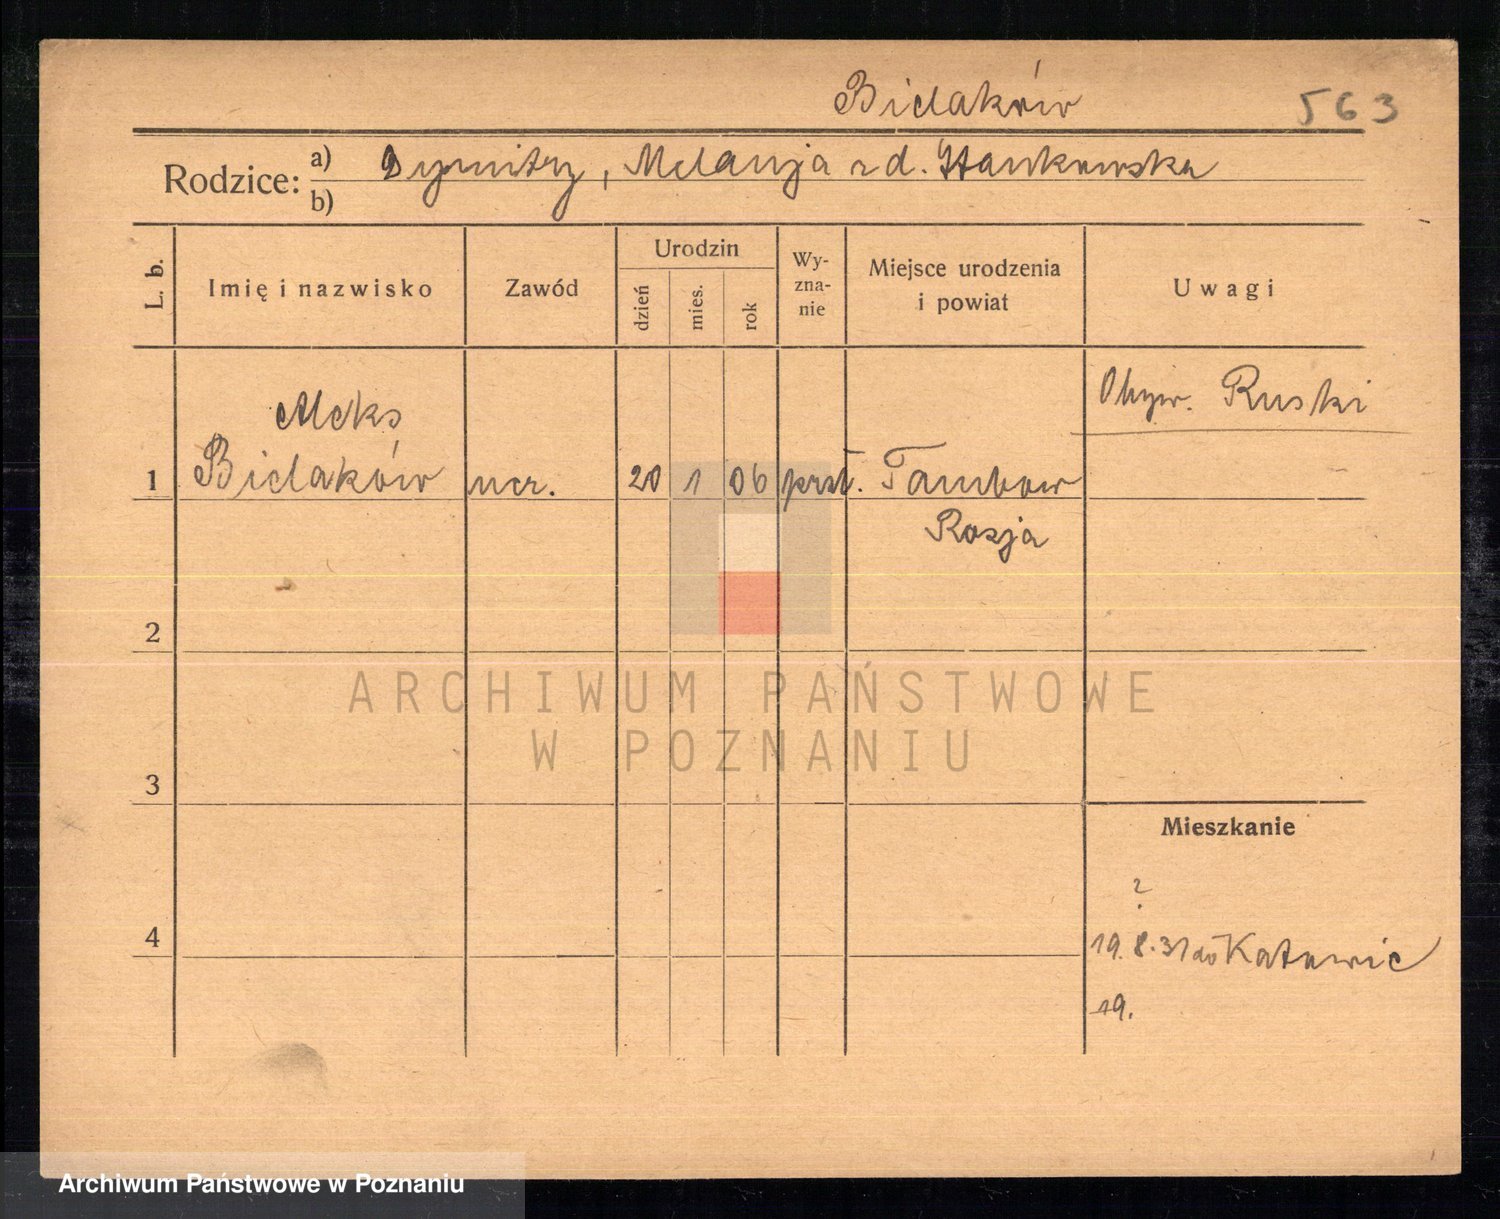 Bielaków 563
Rodzice: a) Dymitry, Melanja rd. Stankowska
b)
L. b. Imię i nazwisko Zawód Urodzin dzień mies. rok Wy-zna-nie Miejsce urodzenia i powiat Uwagi
Obyw. Ruski
Aleks
1 Bielaków 20 1 06 Tambow
Rosja
2
ARCHIWUM PAŃSTWOWE
W POZNANIU
3
Mieszkanie
?
4 19. 8. 31 do Katowic
19.
Archiwum Państwowe w Poznaniu